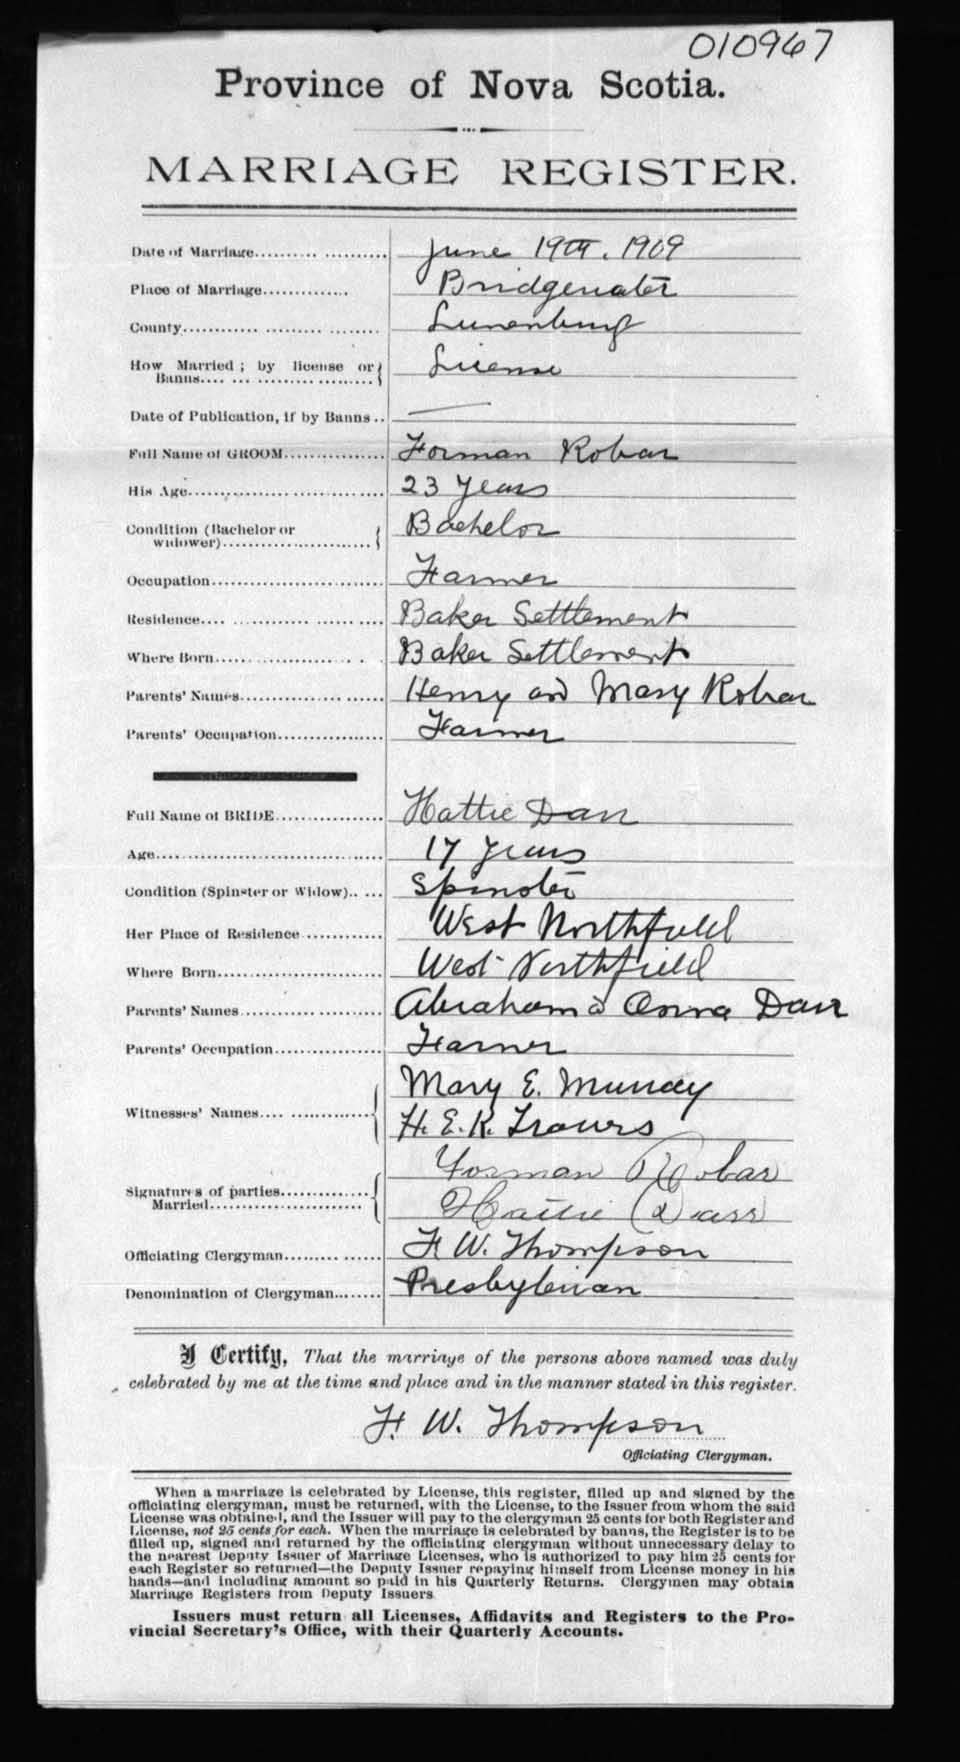 010967
Province of Nova Scotia.
MARRIAGE REGISTER.
Date of Marriage June 19th. 1909
Place of Marriage Bridgewater
County Lunenburg
How Married; by license or Banns License
Date of Publication, if by Banns —
Full Name of GROOM Forman Robar
His Age 23 Years
Condition (Bachelor or widower) Bachelor
Occupation Farmer
Residence Baker Settlement
Where Born Baker Settlement
Parents' Names Henry and Mary Robar
Parents' Occupation Farmer
Full Name of BRIDE Hattie Darr
Age 17 years
Condition (Spinster or Widow) Spinster
Her Place of Residence West Northfield
Where Born West Northfield
Parents' Names Abraham & Anna Darr
Parents' Occupation Farmer
Witnesses' Names Mary E. Murray
H. E. K.
Signatures of parties Married Forman Robar
Hattie Darr
Officiating Clergyman F. W. Thompson
Denomination of Clergyman Presbyterian
I Certify, That the marriage of the persons above named was duly
celebrated by me at the time and place and in the manner stated in this register.
F. W. Thompson
Officiating Clergyman.
When a marriage is celebrated by License, this register, filled up and signed by the
officiating clergyman, must be returned, with the License, to the Issuer from whom the said
License was obtained, and the Issuer will pay to the clergyman 25 cents for both Register and
License, not 25 cents for each. When the marriage is celebrated by banns, the Register is to be
filled up, signed and returned by the officiating clergyman without unnecessary delay to
the nearest Deputy Issuer of Marriage Licenses, who is authorized to pay him 25 cents for
each Register so returned—the Deputy Issuer repaying himself from License money in his
hands—and including amount so paid in his Quarterly Returns. Clergymen may obtain
Marriage Registers from Deputy Issuers
Issuers must return all Licenses, Affidavits and Registers to the Pro-
vincial Secretary's Office, with their Quarterly Accounts.